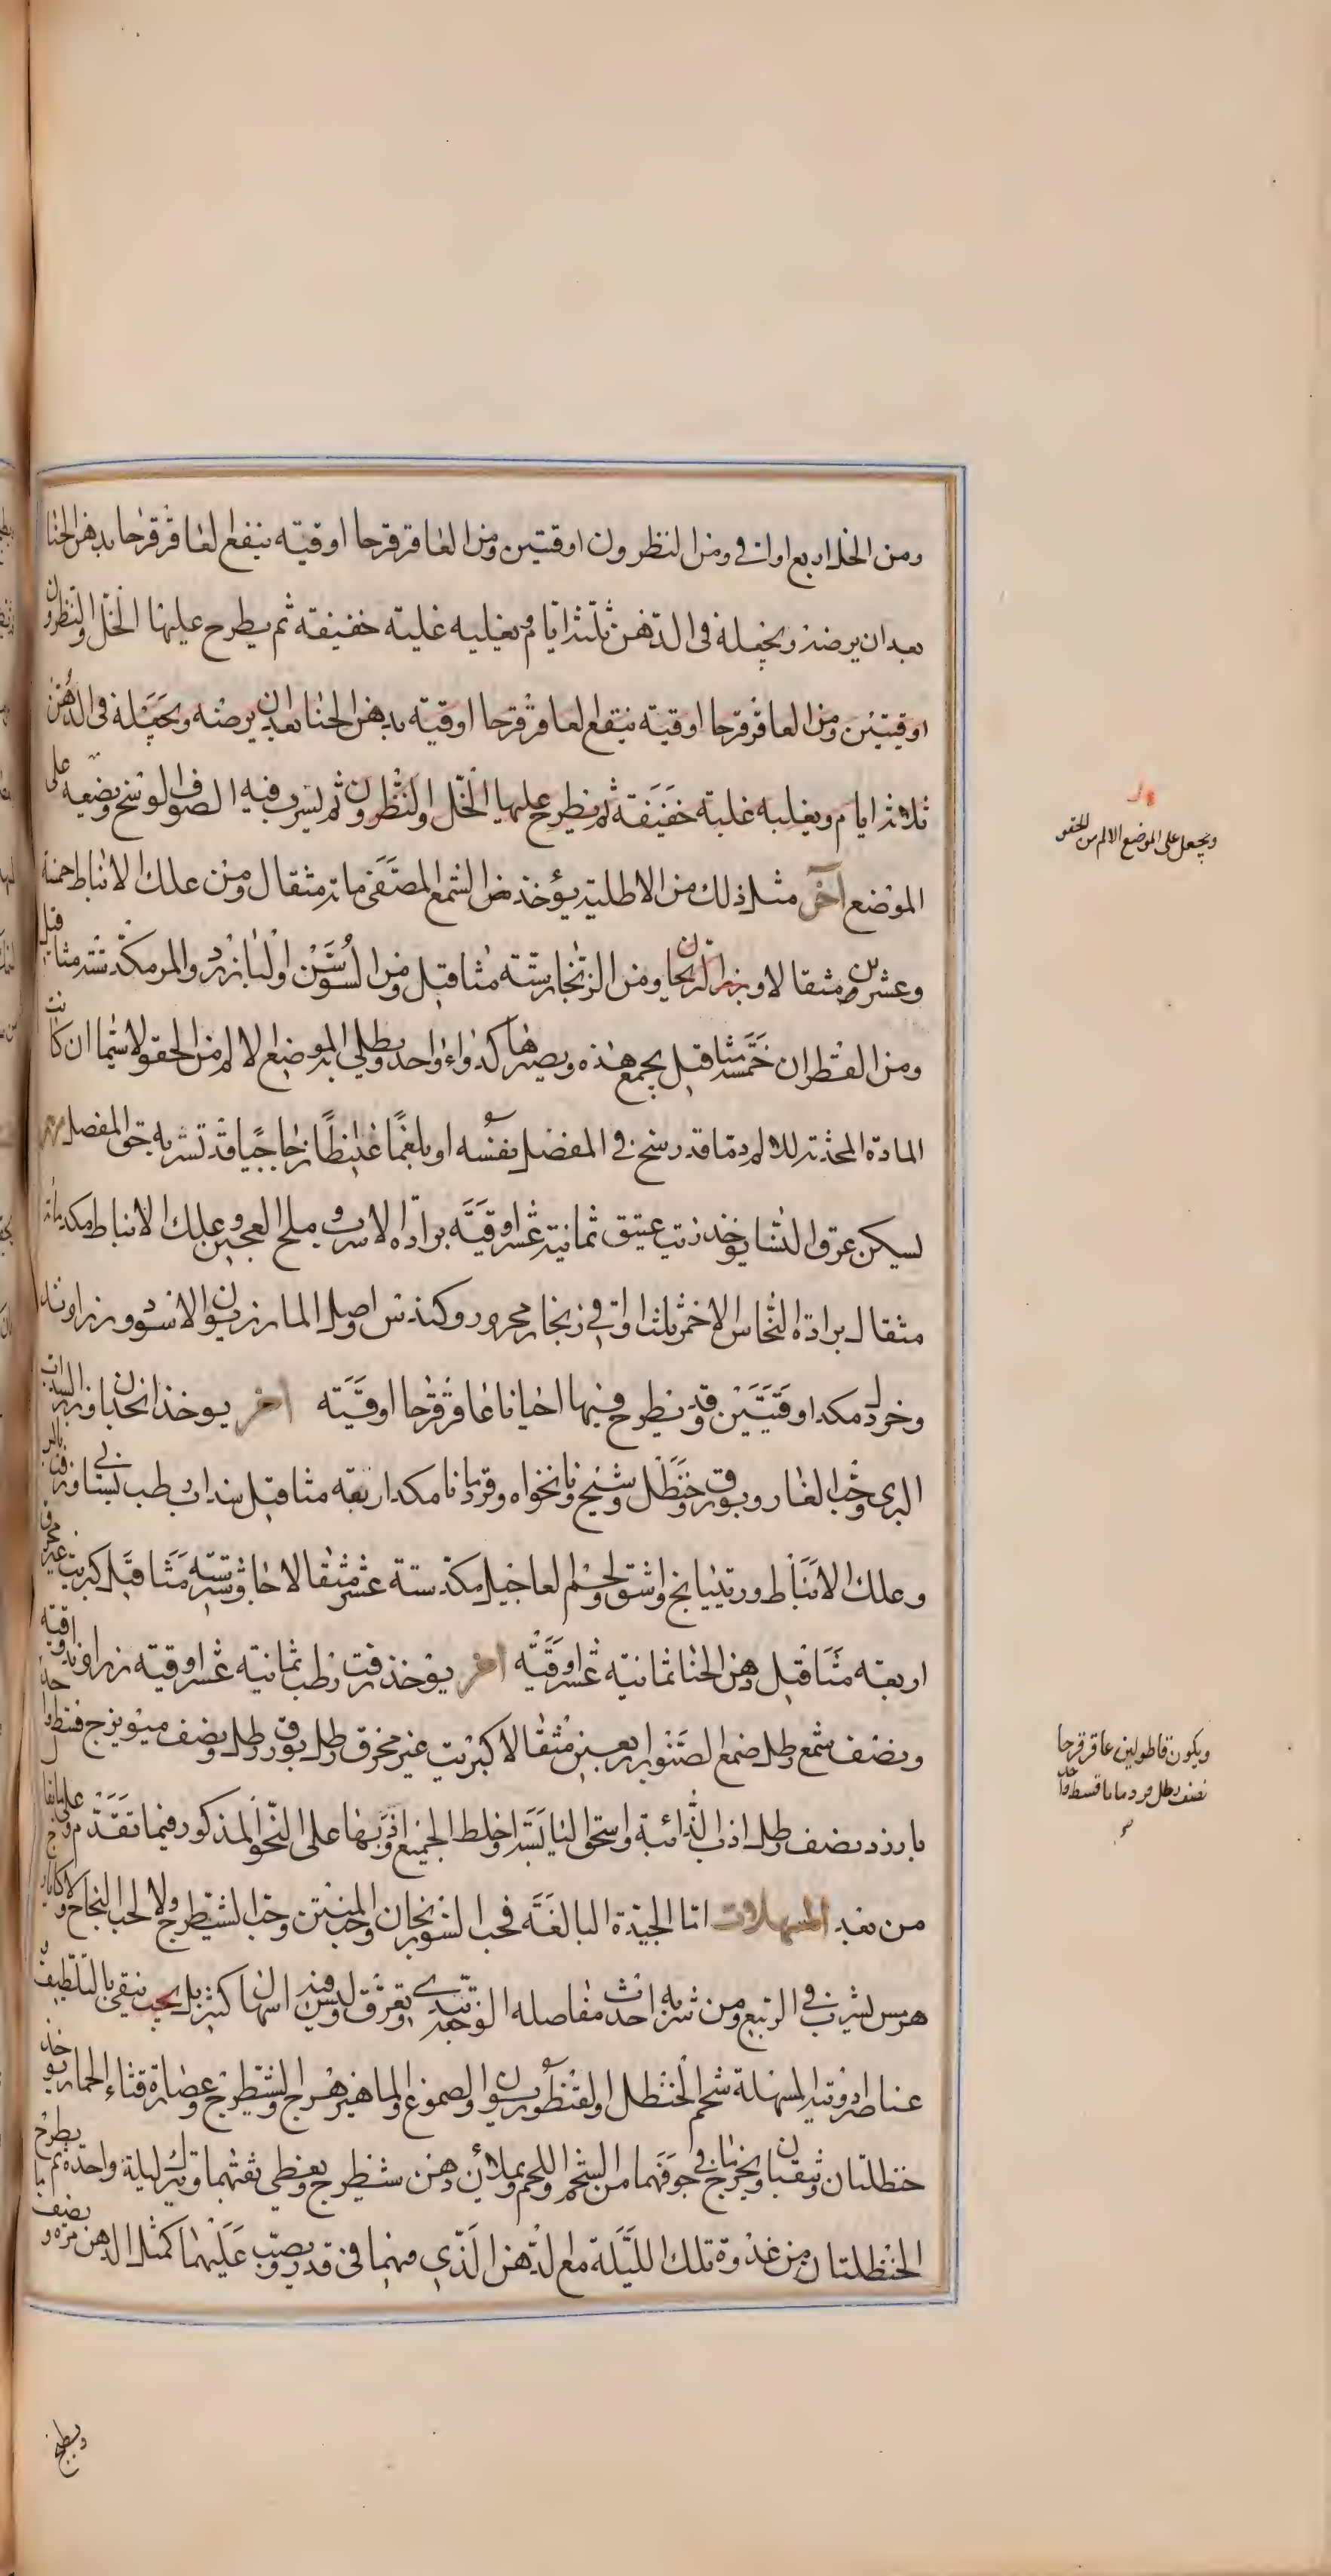 ومن الخل اربع اواق ومن النطرون اوقيتين ومن العاقرقرحا اوقية ينقع العاقرقرحا بدهن الحنا
بعد ان يرضه ويجعله في الدهن ثلثة ايام ويغليه غلية خفيفة ثم يطرح عليها الخل والنطرون
اوقيتين ومن العاقرقرحا اوقية ينقع العاقرقرحا اوقية بدهن الحنا بعد ان يرضه ويجعله في الدهن
ثلاثة ايام ويغليه غلية خفيفة ثم يطرح عليها الخل والنطرون ثم يشرب فيه الصوف الوسخ ويضعه على
الموضع آخر مثل ذلك من الاطلية يؤخذ من الشمع المصفى ماية مثقال ومن علك الانباط خمسة
وعشرين مثقالا ومن الزنجار ستة مثاقيل ومن السوسن اولبارزد والمر مكد ستة مثاقيل
ومن القطران خمسة مثاقيل يجمع هذه ويصيرها كدواء واحد ويطلى به الموضع الالم من الحقو لاسيما ان كانت
المادة المحدثة للالم دما قد رسخ في المفصل نفسه او بلغما غليظا زجاجيا قد تشربه حق المفصل
لسكن عرق النسا يوخذ زيت عتيق ثمانية عشر اوقية برادة الاسرب وملح العجين وعلك الانباط مكد ماية
مثقال برادة النحاس الاحمر ثلثة اواق زنجار مجرود وكندس واصل المازريون الاسود وزراوند
وخردل مكد اوقيتين وقد يطرح فيها احيانا عاقرقرحا اوقية آخر يوخذ انجدان وبزر السداب
البري وحب الغار وبورق وحنظل وشيح ونانخواه وقردمانا مكد اربعة مثاقيل سداب رطب بستاني
وعلك الانباط وريتيانج واشق ولحم العاجيل مكد ستة عشر مثقالا جاوشير ستة مثاقيل كبريت غير محرق
اربعة مثاقيل دهن الحنا ثمانية عشر اوقية آخر يوخذ زفت رطب ثمانية عشر اوقية زراوند اوقية
ونصف شمع رطل صمغ الصنوبر اربعين مثقالا كبريت غير محرق رطل بورق رطل ونصف ميويزج قسط واحد
بارزد نصف رطل اذب الذائبة واسحق اليابسة واخلط الجميع اذوبها على النحو المذكور فيما تقدم
من بعد المسهلات اما الجيدة البالغة فحب السورنجان وحب المنتن وحب الشيطرج ولا لحب النجاح
هرمس يشرب في الربيع ومن شربه احدث مفاصله الوجع يعرق وليس فيه اسهال كثير بل يجب ينقى بالتلطيف
عناصر ادوية المسهلة شحم الحنظل والقنطوريون والصموغ والماهيزهرج والشيطرج وعصارة قثاء الحمار يوخذ
حنظلتان وتثقبان ويخرج ما في جوفهما من الشحم واللحم ويملان دهن شيطرج ويغطى ثقبهما وتترك ليلة واحدة ثم يطبخ
الحنظلتان من غدوة تلك الليلة مع الدهن الذي فيهما في قدر ويصب عليهما كمثل الدهن مرة ونصف
ويجعل على الموضع الالم من الحقو
ويكون قاطولين عاقرقرحا
نصف رطل قردمانا قسط واحد
ويطبخ